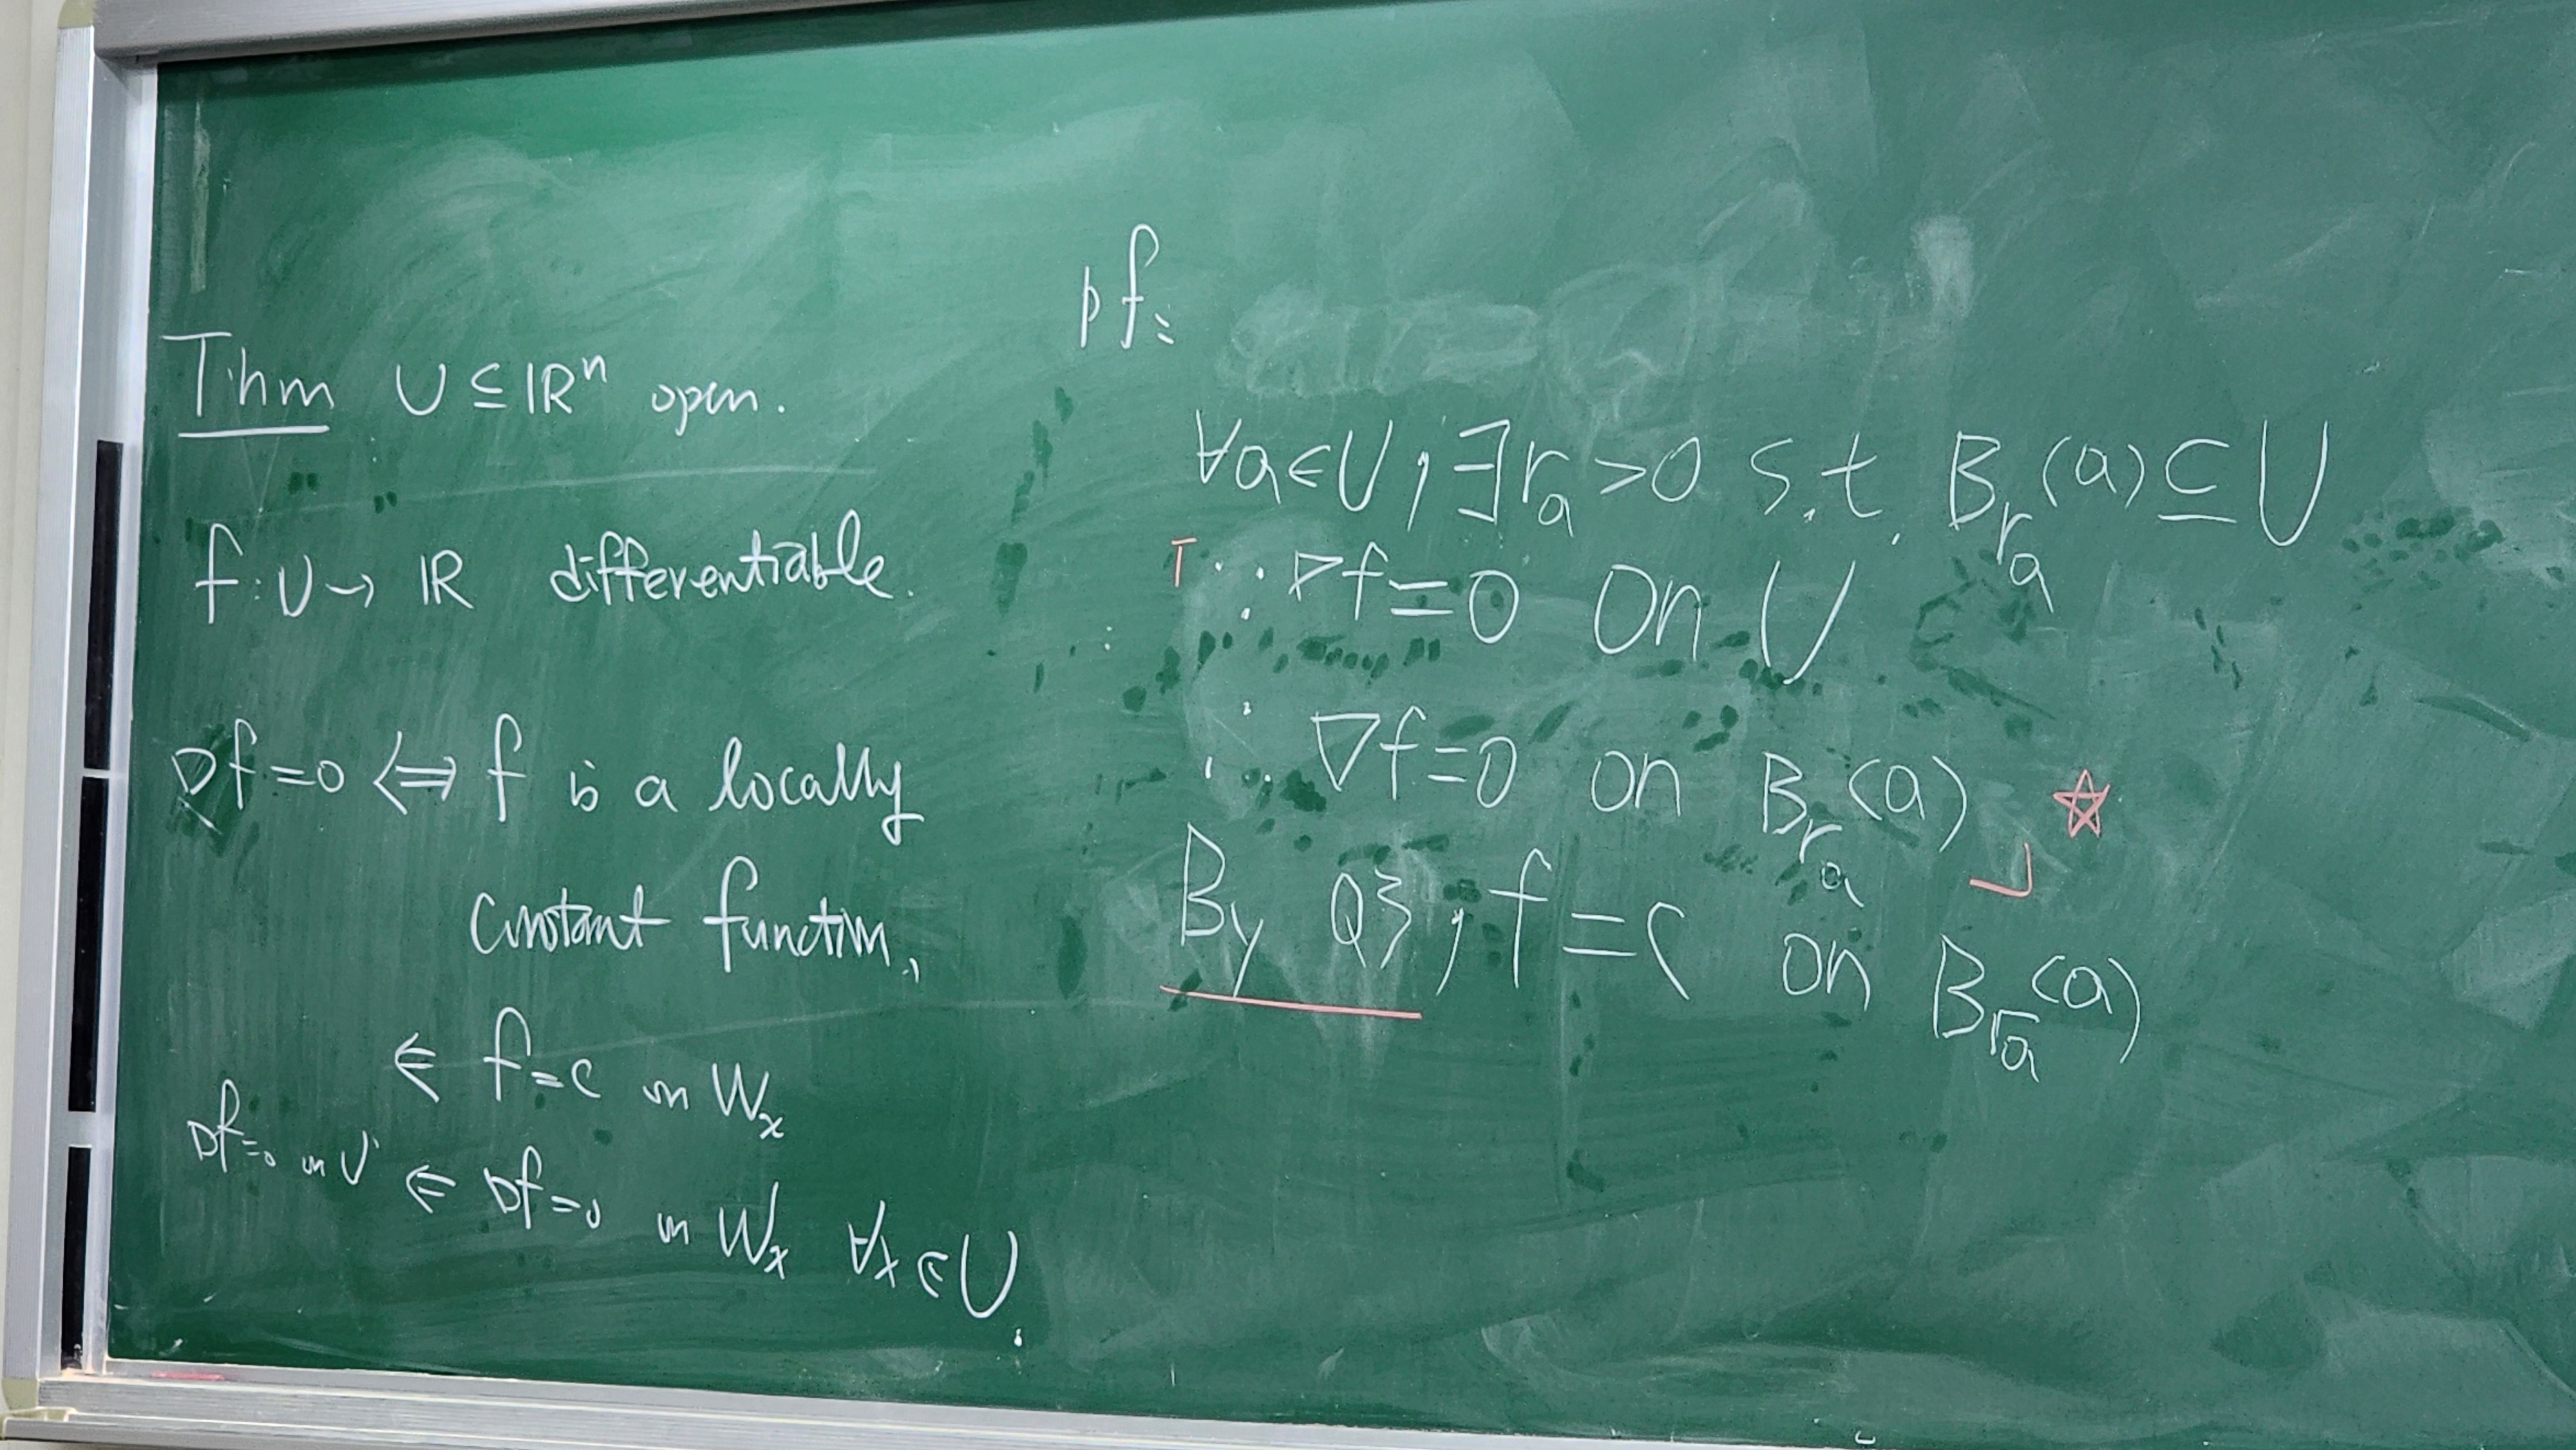 Thm U ⊆ ℝⁿ open.
f: U → ℝ differentiable.
∇f = 0 ⟺ f is a locally
constant function.
⇐ f = c on Wₓ
∇f = 0 on U ⇐ ∇f = 0 on Wₓ ∀x ∈ U.
pf:
∀a ∈ U, ∃ rₐ > 0 s.t. B_{rₐ}(a) ⊆ U
∵ ∇f = 0 on U
∴ ∇f = 0 on B_{rₐ}(a) ☆
By Q3, f = c on B_{rₐ}(a)